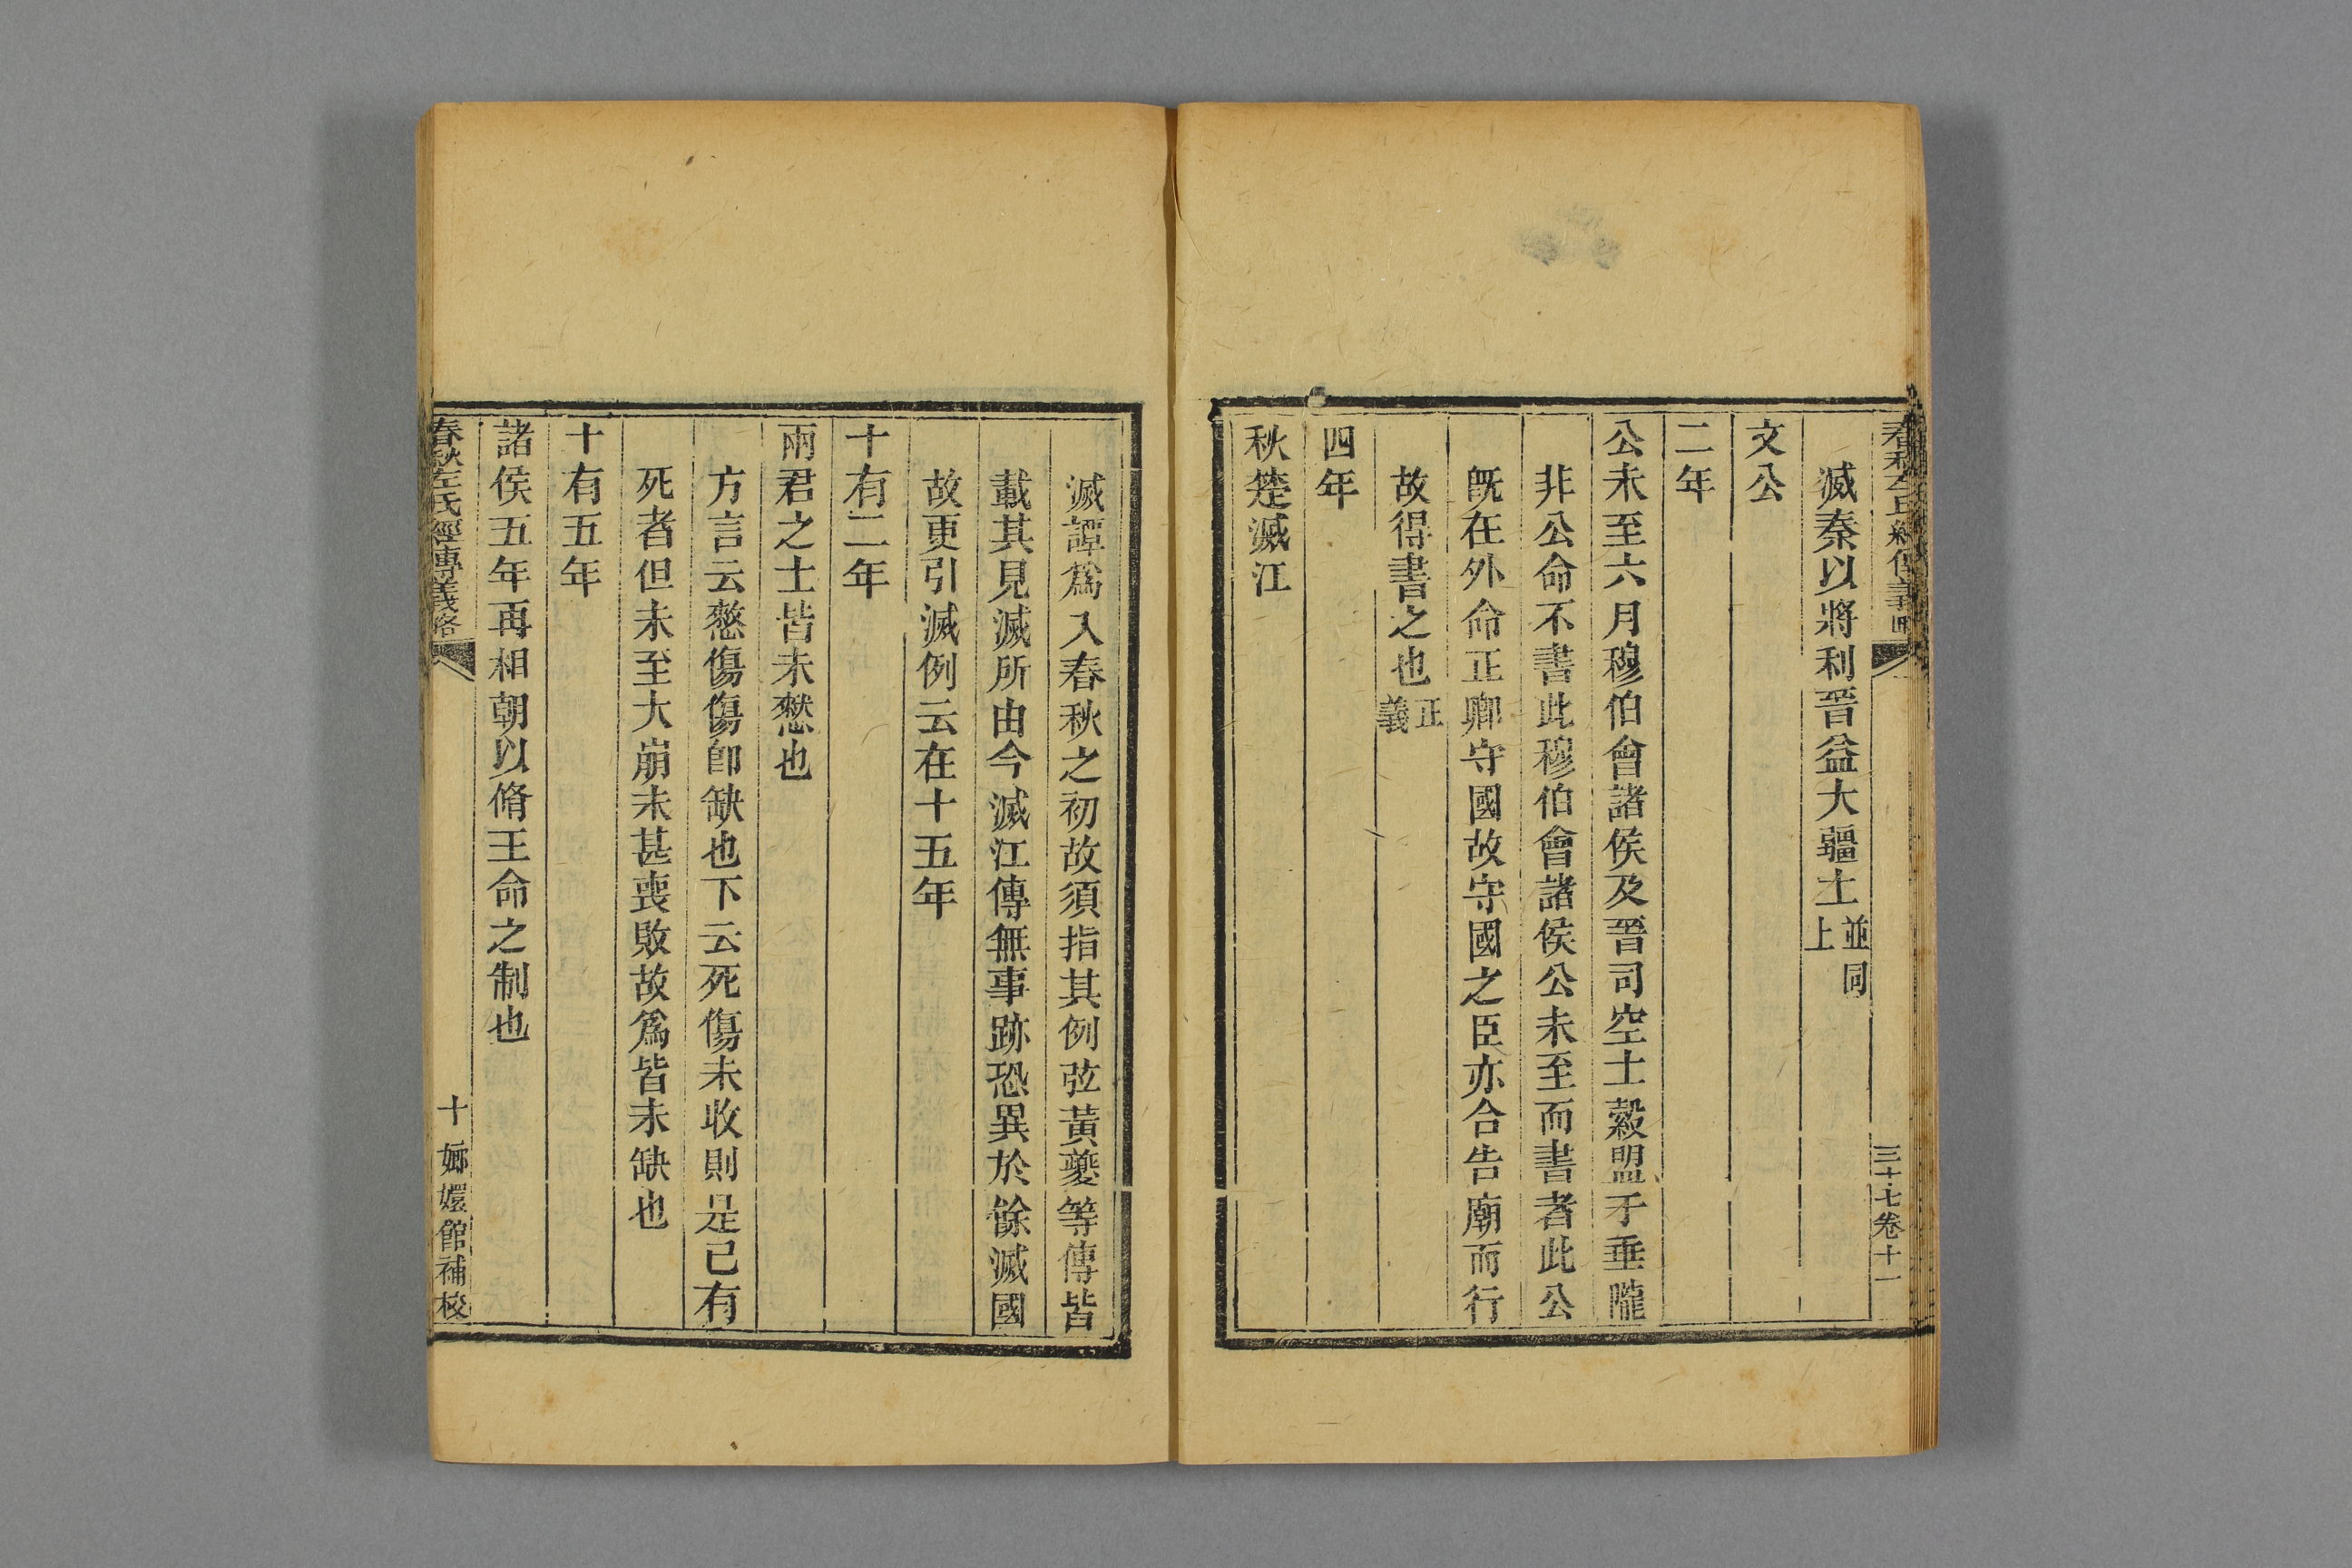 春秋左氏經傳義略
三十七卷十一
滅秦以將利晉益大疆土並同上
文公
二年
公未至六月穆伯會諸侯及晉司空士縠盟于垂隴
非公命不書此穆伯會諸侯公未至而書者此公
旣在外命正卿守國故守國之臣亦合告廟而行
故得書之也正義
四年
秋楚滅江
滅譚爲入春秋之初故須指其例弦黃夔等傳皆
載其見滅所由今滅江傳無事跡恐異於餘滅國
故更引滅例云在十五年
十有二年
兩君之士皆未憖也
方言云憖傷傷卽缺也下云死傷未收則是已有
死者但未至大崩未甚喪敗故爲皆未缺也
十有五年
諸侯五年再相朝以脩王命之制也
春秋左氏經傳義略
十
嫏嬛館補校